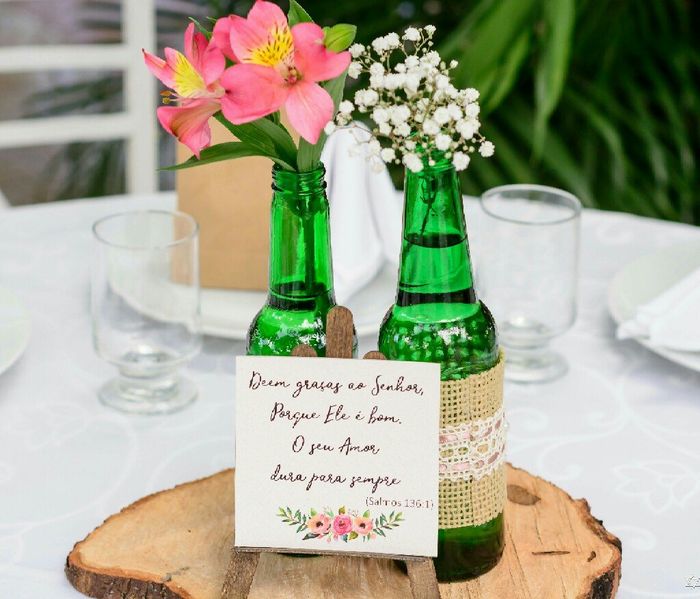 Deem grasas ao Senhor,
Porque Ele é bom.
O seu Amor
dura para sempre
(Salmos 136:1)